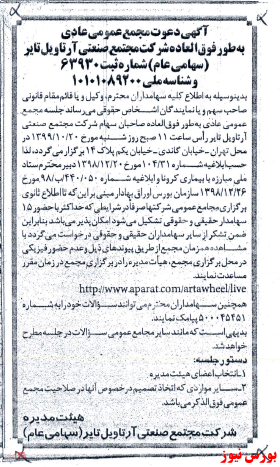 آگهی دعوت مجمع عمومی عادی
به طور فوق العاده شرکت مجتمع صنعتی آرتاویل تایر
(سهامی عام) شماره ثبت ۶۳۹۳۰
و شناسه ملی ۱۰۱۰۱۰۸۹۲۰۰
بدینوسیله به اطلاع کلیه سهامداران محترم، وکیل و یا قائم مقام قانونی
صاحب سهم و یا نمایندگان اشخاص حقوقی می‌رساند جلسه مجمع
عمومی عادی به طور فوق العاده صاحبان سهام شرکت مجتمع صنعتی
آرتاویل تایر رأس ساعت ۱۱ صبح روز شنبه مورخ ۱۳۹۹/۱۰/۲۰ در
محل تهران - خیابان یکم پلاک ۱۴ برگزار می گردد، لذا
حسب ابلاغیه شماره ۱۰۴/۳۱ مورخ ۱۳۹۸/۱۲/۲۰ دبیر محترم ستاد
ملی مبارزه با بیماری کرونا و ابلاغیه شماره ۴۴۰/۰۵۰/ب/۹۸ مورخ
۱۳۹۸/۱۲/۲۶ سازمان بورس اوراق بهادار مبنی بر این که تا اطلاع ثانوی
برگزاری مجامع عمومی شرکتها صرفاً در شرایطی که حداکثر با حضور ۱۵
سهامدار حقیقی و حقوقی تشکیل می شود امکان پذیر می باشد؛ بنابراین
ضمن تشکر از سایر سهامداران حقیقی و حقوقی درخواست می گردد با
مشاهده همزمان مجمع از طریق پیوندهای ذیل و عدم حضور فیزیکی
در محل برگزاری مجمع، هیأت مدیره را در برگزاری مجمع در زمان مقرر
مساعدت نمایند.
http://www.aparat.com/artawheel/live
همچنین سهامداران محترم می توانند سؤالات خود را به شماره
۵۰۰۰۴۵۴۵۱ پیامک نمایند.
بدیهی است که مانند سایر مجامع عمومی سؤالات در جلسه مطرح
خواهد شد.
دستور جلسه:
۱- انتخاب اعضای هیئت مدیره
۲- سایر مواردی که اتخاذ تصمیم در خصوص آنها در صلاحیت مجمع
عمومی فوق الذکر می باشد.
هیئت مدیره
شرکت مجتمع صنعتی آرتاویل تایر (سهامی عام)
بورس نیوز